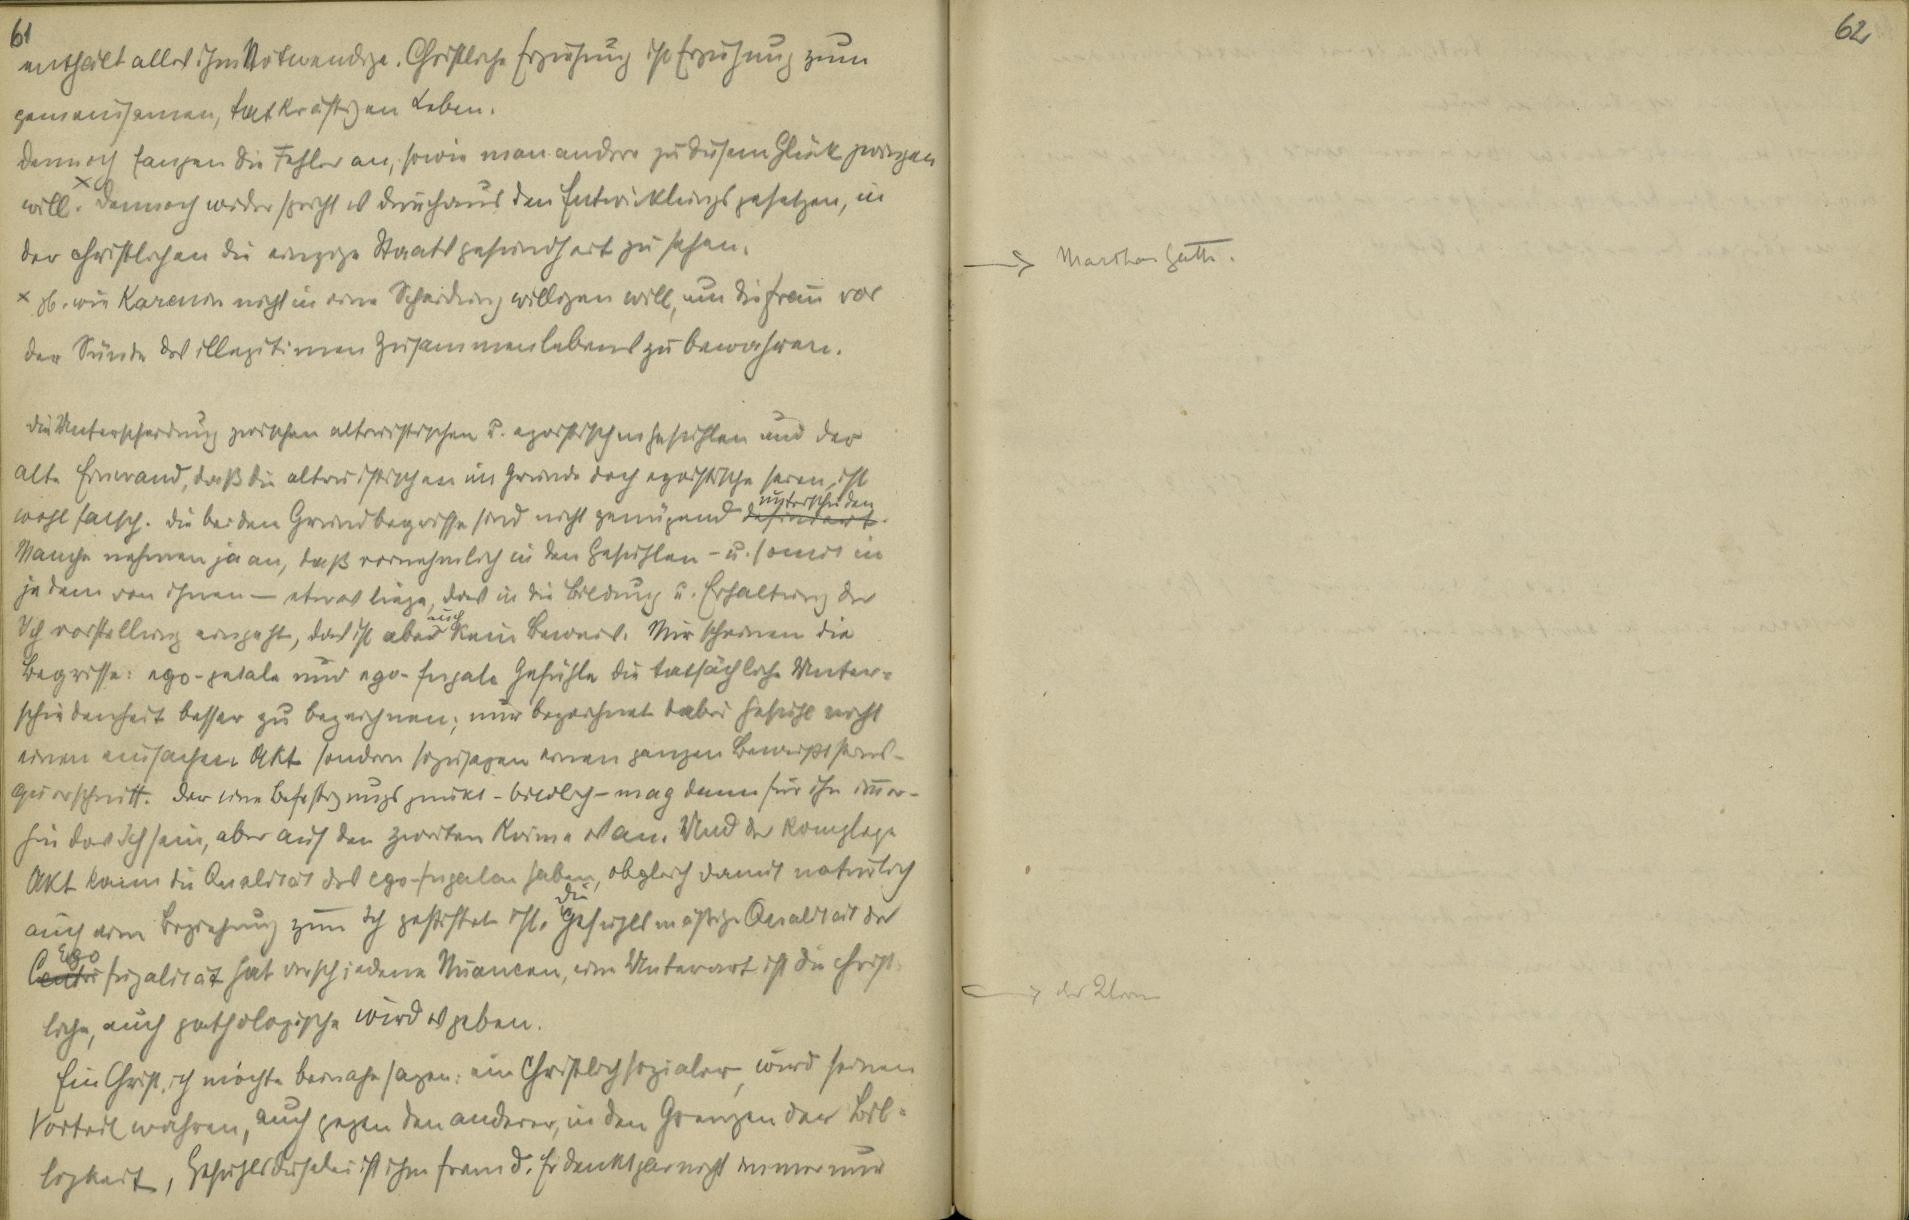 61
enthält alles ihm Notwendige. Christliche Erziehung ist Erziehung zum
gemeinsamen, tatkräftigen Leben.
Dennoch fangen die Fehler an, sowie man andere zu diesem Glück zwingen
will.× Dennoch widerspricht es durchaus den Entwicklungsgesetzen, in
der christlichen die einzige Staatsgesundheit zu sehen.
× zb. wie Karenin nicht in eine Scheidung willigen will, um die Frau vor
der Sünde des illegitimen Zusammenlebens zu bewahren.
Die Unterscheidung zwischen altruistischen u. egoistischen Gefühlen und der
alte Einwand, daß die altruistischen im Grunde doch egoistische seien, ist
wohl falsch. Die beiden Grundbegriffe sind nicht genügend definiert unterschieden.
Manche nehmen ja an, daß vornehmlich in den Gefühlen – u. somit in
jedem von ihnen – etwas liege, das in die Bildung u. Erhaltung der
Ichvorstellung eingeht, das ist aber auch kein Beweis. Mir scheinen die
Begriffe: ego-petale und ego-fugale Gefühle die tatsächliche Unter-
schiedenheit besser zu bezeichnen; nur bezeichnet dabei Gefühl nicht
einen einfachen Akt sondern sozusagen einen ganzen Bewußtseins-
querschnitt. Der eine Befestigungspunkt – bildlich – mag dann für ihn immer-
hin das Ich sein, aber auf den zweiten käme es an. Und der komplexe
Akt kann die Qualität des ego-fugalen haben, obgleich damit natürlich
auch eine Beziehung zum Ich gestiftet ist. Die gefühlsmäßige Qualität der
Centri Ego fugalität hat verschiedene Nuancen, eine Unterart ist die christ-
liche, auch pathologische wird es geben.
Ein Christ, ich möchte beinahe sagen: ein Christlichsozialer, wird seinen
Vorteil wahren, auch gegen den anderer, in den Grenzen der Bil-
ligkeit, Gefühlsduselei ist ihm fremd. Er denkt gar nicht immer nur
62
→ Marthas Gatte.